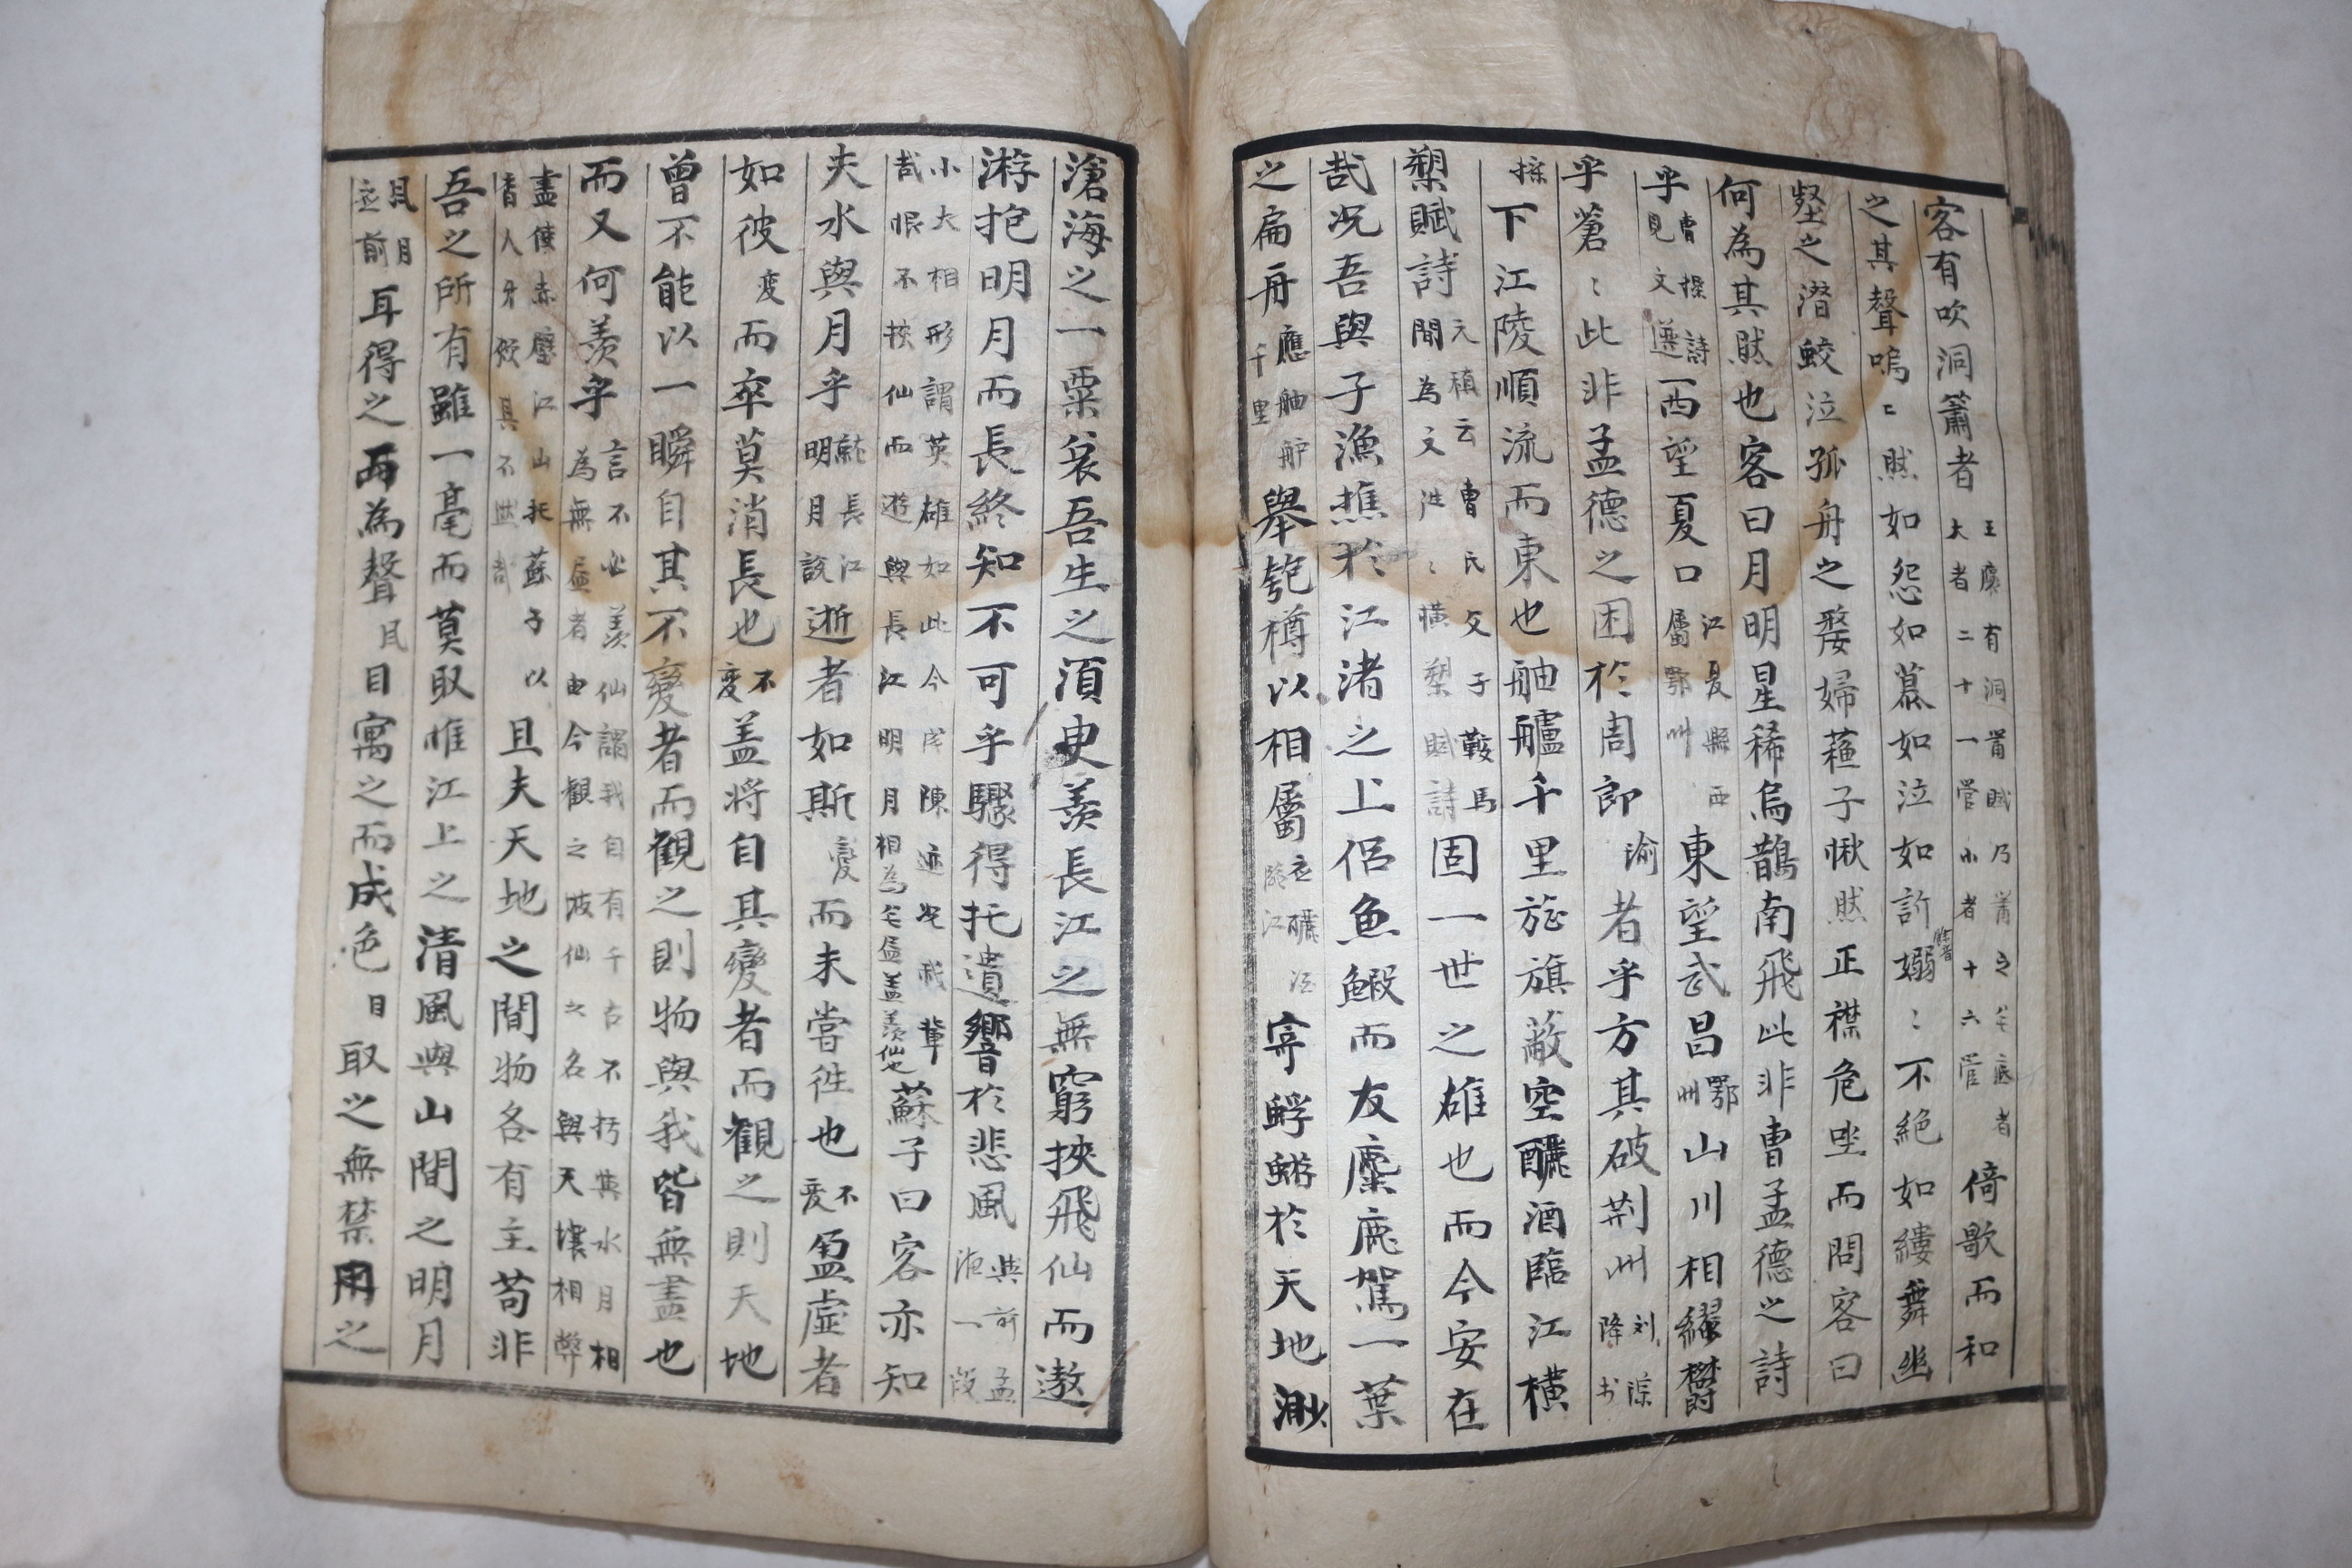 客有吹洞簫者王褒有洞簫賦乃簫之无底者大者二十一管小者十六管倚歌而和
之其聲嗚〻然如怨如慕如泣如訴嫋〻不絕如縷舞幽
壑之潛蛟泣孤舟之嫠婦蘓子愀然正襟危坐而問客曰
何為其然也客曰月明星稀烏鵲南飛此非曹孟德之詩
乎曹操詩見文選西望夏口江夏縣西屬鄂州東望武昌鄂州山川相繆鬱
乎蒼〻此非孟德之困於周郎瑜者乎方其破荆州刘琮降
操下江陵順流而東也舳艫千里旌旗蔽空釃酒臨江橫
槊賦詩元稹云曹氏父子鞍馬間為文往〻橫槊賦詩固一世之雄也而今安在
哉况吾與子漁樵於江渚之上侶魚鰕而友麋鹿駕一葉
之扁舟應舳舮千里舉匏樽以相屬应釃酒臨江寄蜉蝣於天地渺
滄海之一粟哀吾生之須臾羨長江之無窮挾飛仙而遨
游抱明月而長終知不可乎驟得托遺響於悲風與前孟德一段
小大相形謂英雄如此今成陳迹况我輩哉恨不挾仙而遊與長江明月相為无盡盖羨仙也蘇子曰客亦知
夫水與月乎就長江明月說逝者如斯變而未嘗徃也不变盈虛者
如彼变而卒莫消長也不变盖将自其變者而觀之則天地
曾不能以一瞬自其不變者而觀之則物與我皆無盡也
而又何羨乎言不必羨仙謂我自有千古不朽與水月相為無盡者由今觀之彼仙之名與天壤相弊
盡使赤壁江山托蘇子以且夫天地之間物各有主苟非
吾之所有雖一毫而莫取惟江上之清風與山間之明月
風月应前耳得之而為聲風目寓之而成色月取之無禁用之